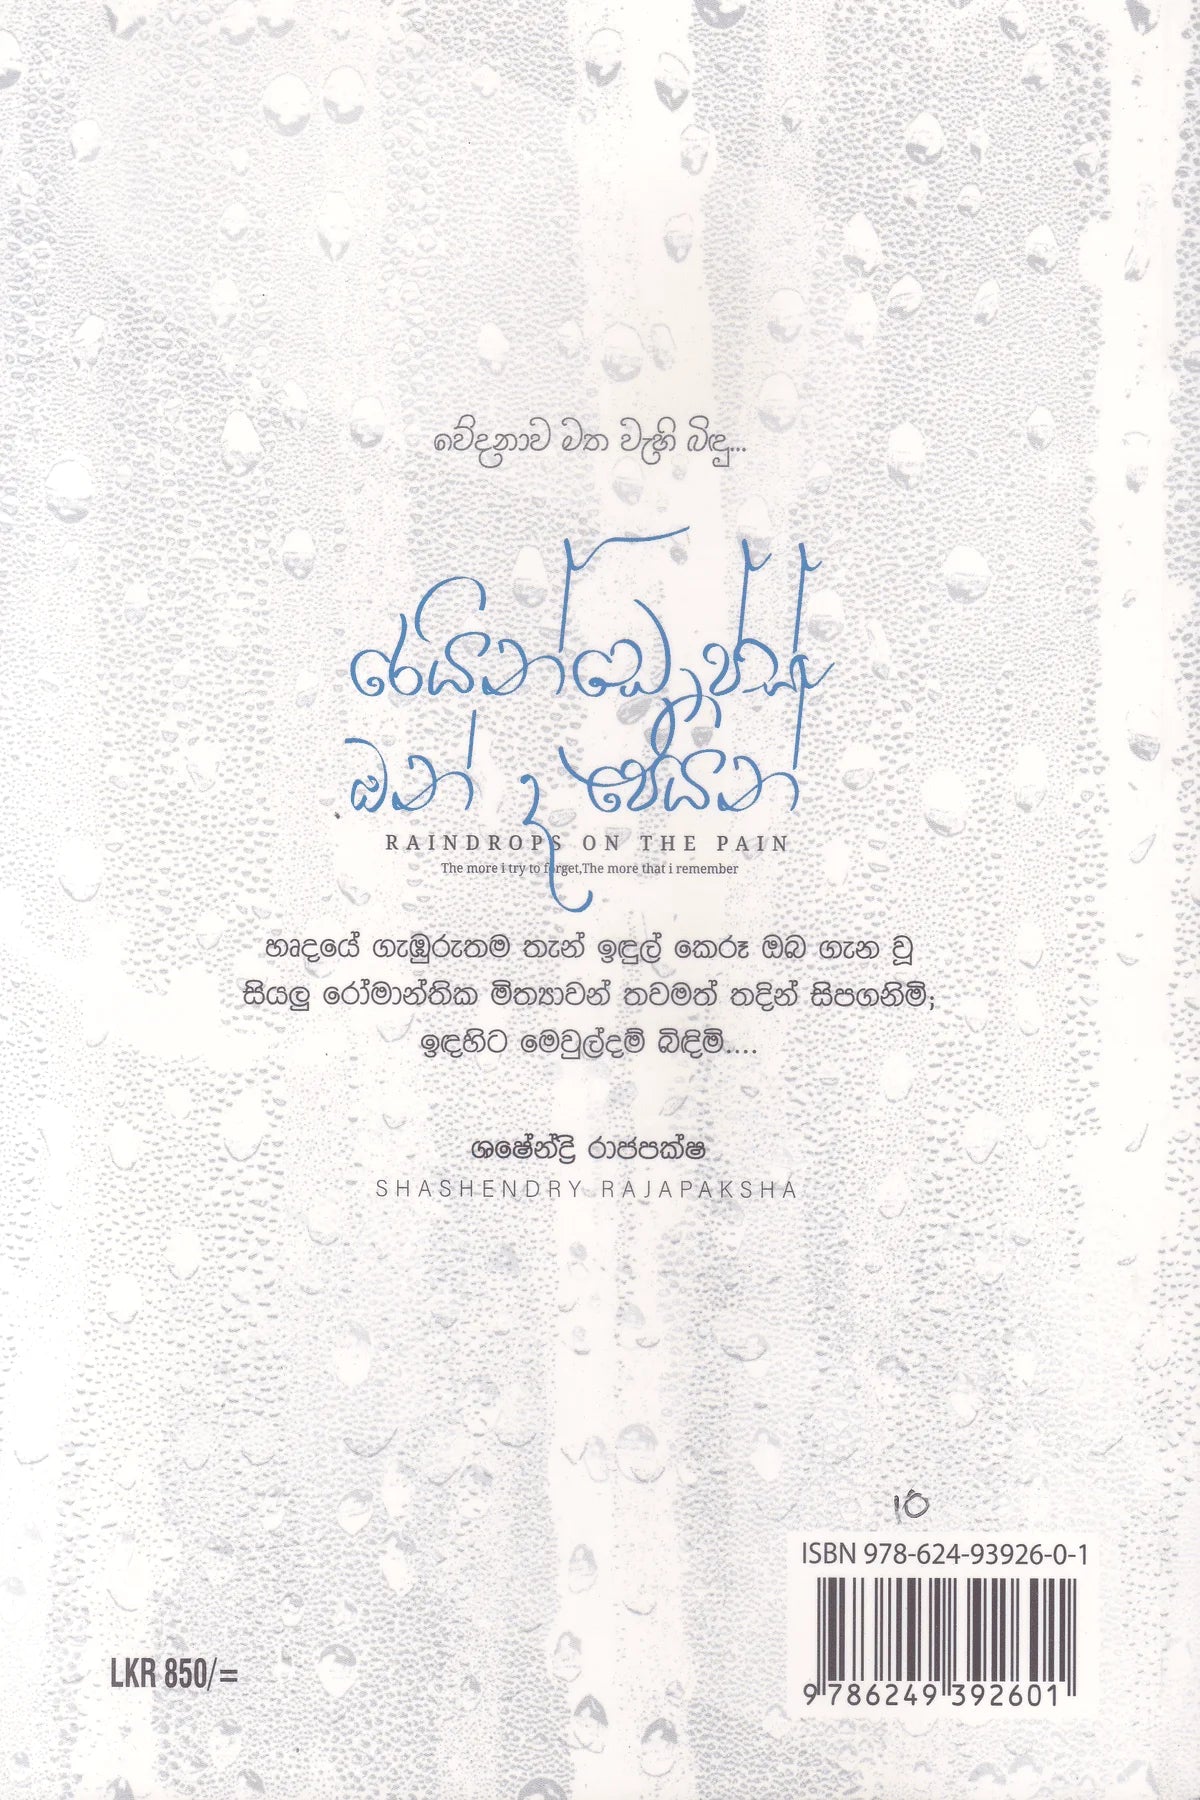 වේදනාව මත වැහි බිඳු...
රෙයින්ඩ්‍රොප්ස්
ඔන් ද පේයින්
RAINDROPS ON THE PAIN
The more i try to forget,The more that i remember
හෘදයේ ගැඹුරුතම තැන් ඉඳුල් කෙරූ ඔබ ගැන වූ
සියලු රෝමාන්තික මිත්‍යාවන් තවමත් තදින් සිපගනිමි;
ඉඳහිට මෙවුල්දම් බිඳිමි....
ශෂේන්ද්‍රි රාජපක්ෂ
SHASHENDRY RAJAPAKSHA
ISBN 978-624-93926-0-1
LKR 850/=
9 786249 392601